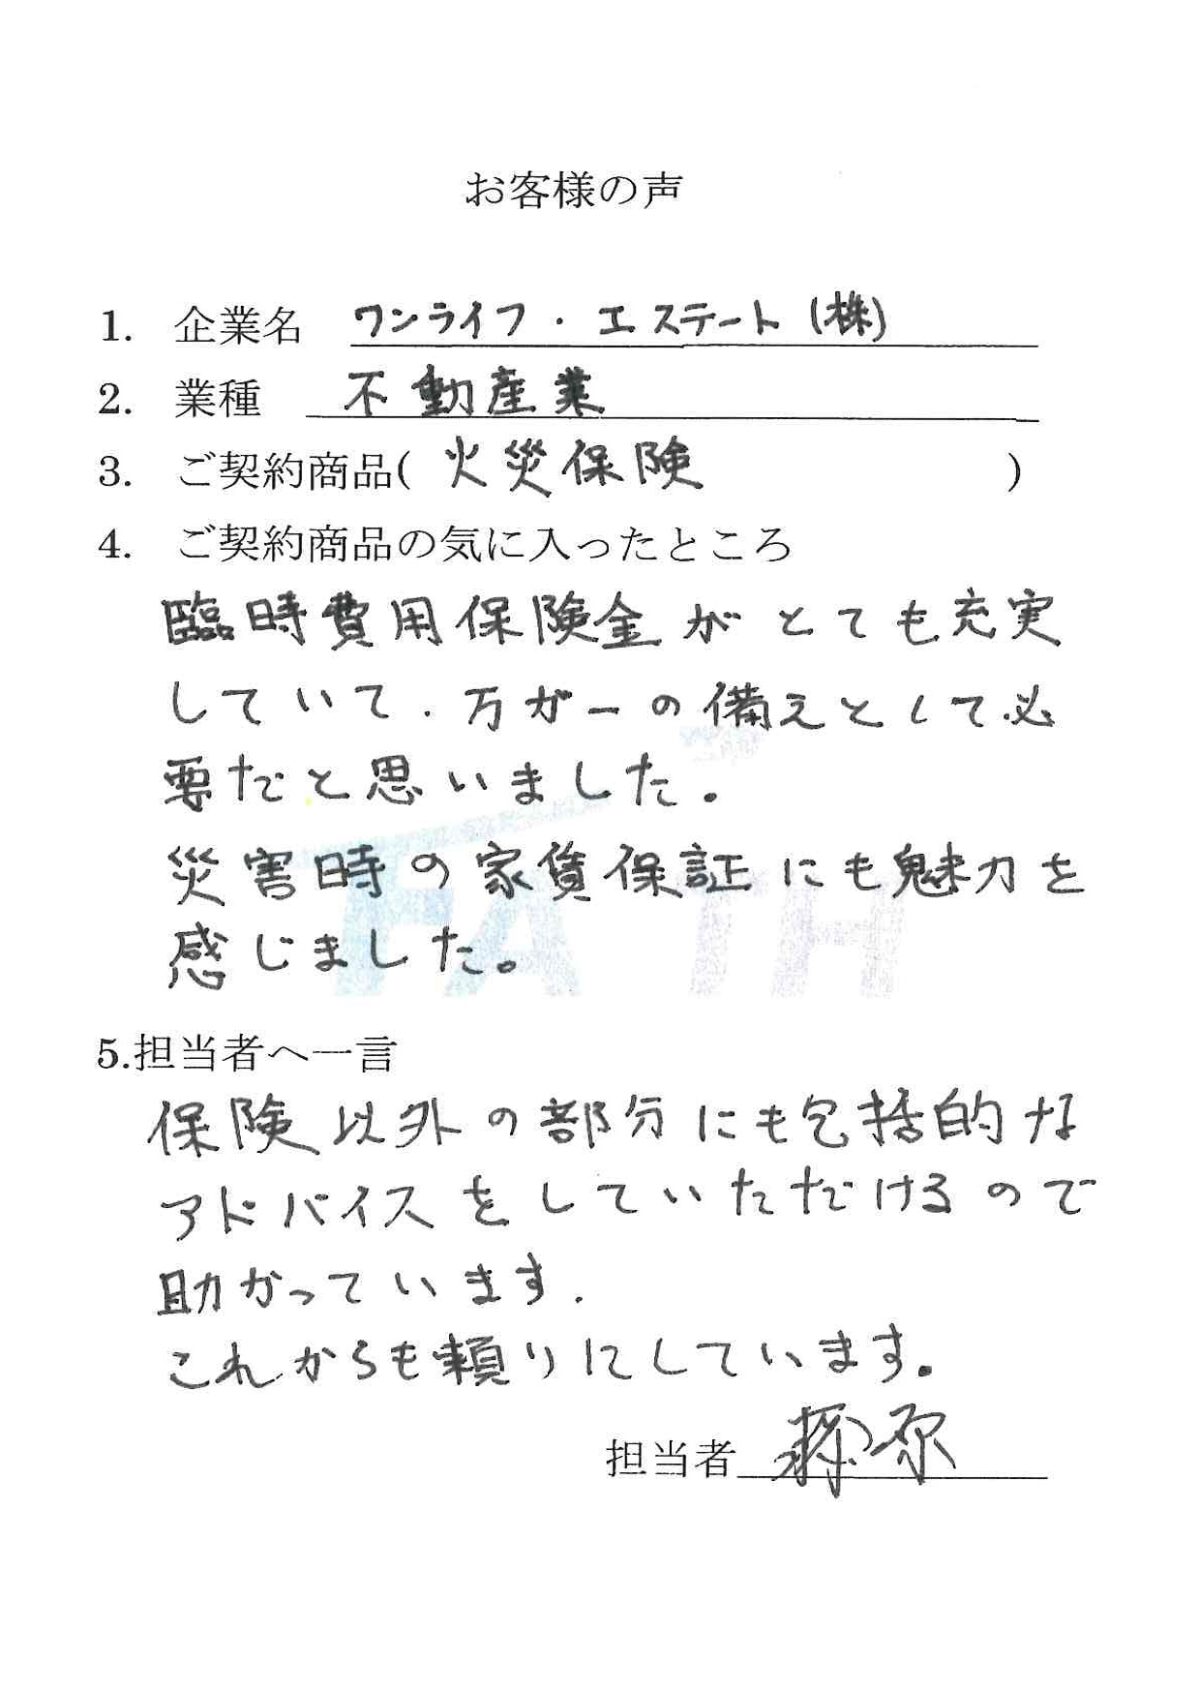 お客様の声
1. 企業名 ワンライフ・エステート(株)
2. 業種 不動産業
3. ご契約商品( 火災保険 )
4. ご契約商品の気に入ったところ
臨時費用保険金がとても充実
していて、万が一の備えとして必
要だと思いました。
災害時の家賃保証にも魅力を
感じました。
5.担当者へ一言
保険以外の部分にも包括的な
アドバイスをしていただけるので
助かっています.
これからも頼りにしています。
担当者 藤原